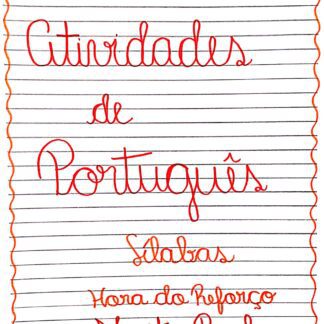 Atividades
de
Português
Sílabas
Hora do Reforço